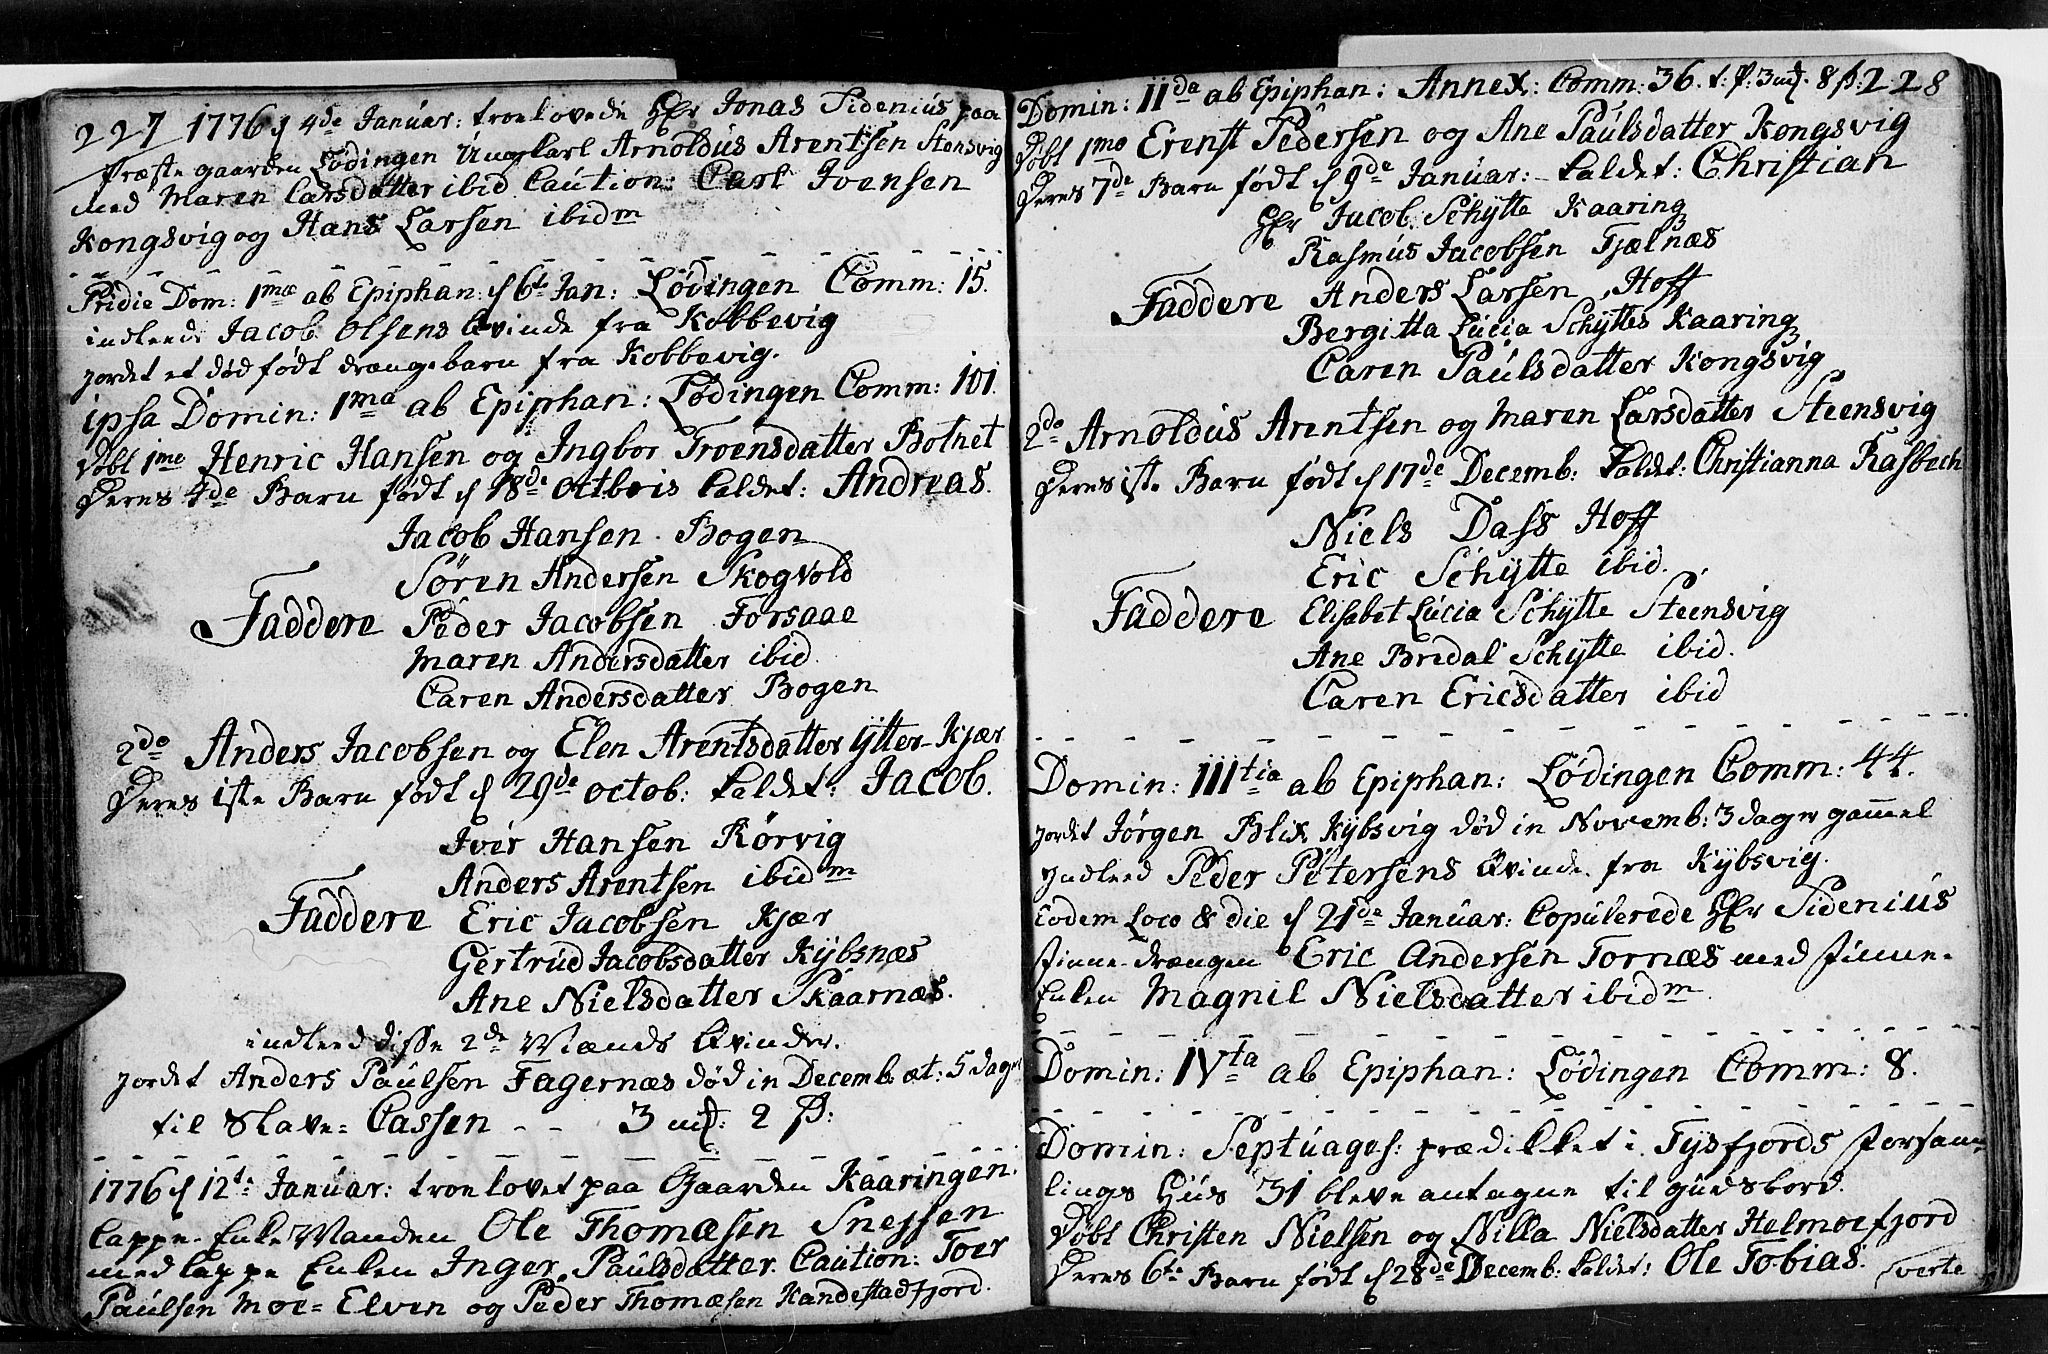 227 1776 d 4de Januar: troelovede Hr Jonas Sidenius paa
Præste gaarden Lødingen Ungkarl Arnoldus Arentsen Stensvig
med Maren Larsdatter ibid Caution: Carl Ivensen
Kongsvig og Hans Larsen ibidm
Pridie Dom: 1mæ ab Epiphan: d 6te Jan: Lødingen Comm: 15.
indleede Jacob Olsens Qvinde fra Kobbevig
jordet et død født drænge barn fra Kobbevig.
ipsa Domin: 1ma ab Epiphan: Lødingen Comm: 101.
Døbt 1mo Henric Hansen og Ingbor Troensdatter Botnet
Deres 4de Barn født d 18de octbris kaldet: Andreas.
Jacob Hansen Bogen
Søren Andersen Skogvold
Faddere Peder Jacobsen Forsaae
Maren Andersdatter ibid.
Caren Andersdatter Bogen
2do Anders Jacobsen og Elen Arentsdatter Ytter-Kjær
Deres 1ste Barn født d 29de octob: kaldet: Jacob.
Iver Hansen Rørvig
Anders Arentsen ibidm
Faddere Eric Jacobsen Kjær
Gertrud Jacobsdatter Kybsnæs
Ane Nielsdatter Skaarnæs.
indleed disse 2de Mænds Qvinder.
jordet Anders Paulsen Fagernæs død in Decemb: æt: 5 dage
til Slave-Cassen - - 3 mk: 2 ß:
1776 d 12te Januar: troelovet paa Gaarden Kaaringen.
Lappe-Enke Manden Ole Thomæsen Snejsen
med Lappe Enken Inger Paulsdatter. Caution: Toer
Paulsen Moe-Elven og Peder Thomæsen Kandestadfjord.
Domin: IIda ab Epiphan: Annex: Comm: 36. t: p: 3 mk. 8 ß: 228
Døbt 1mo Erenst Pedersen og Ane Paulsdatter Kongsvig
Deres 7de Barn født d 9de Januar: kaldet: Christian
Hr Jacob Schytte Kaaring
Rasmus Jacobsen Fjælnæs
Faddere Anders Larsen Hoff
Bergitta Lucia Schyttes Kaaring
Caren Paulsdatter Kongsvig
2do Arnoldus Arentsen og Maren Larsdatter Steensvig
Deres 1ste Barn født d 17de Decemb: kaldet: Christianna Rasbech
Niels Dass Hoff
Eric Schytte ibid.
Faddere Elisabet Lucia Schytte Steensvig
Ane Bredal Schytte ibid.
Caren Ericsdatter ibid
Domin: IIItia ab Epiphan: Lødingen Comm: 44.
jordet Jørgen Blix Kybsvig død in Novemb: 3 dager gammel
Indleed Peder Petersens Qvinde fra Kybsvig.
Eodem Loco & die d 21de Januar: Copulerede Hr Sidenius
Finne-drængen Eric Andersen Tornæs med Finne-
Enken Magnil Nielsdatter ibidm.
Domin: IVta ab Epiphan: Lødingen Comm: 8.
Domin: Septuages: prædikket i Tysfjords Forsam-
lings Huus 31 bleve antagne til gudsbord.
Døbt Christen Nielsen og Nilla Nielsdatter Helmoefjord
Deres 6te Barn født d 28de Decemb: kaldet: Ole Tobias.
verte